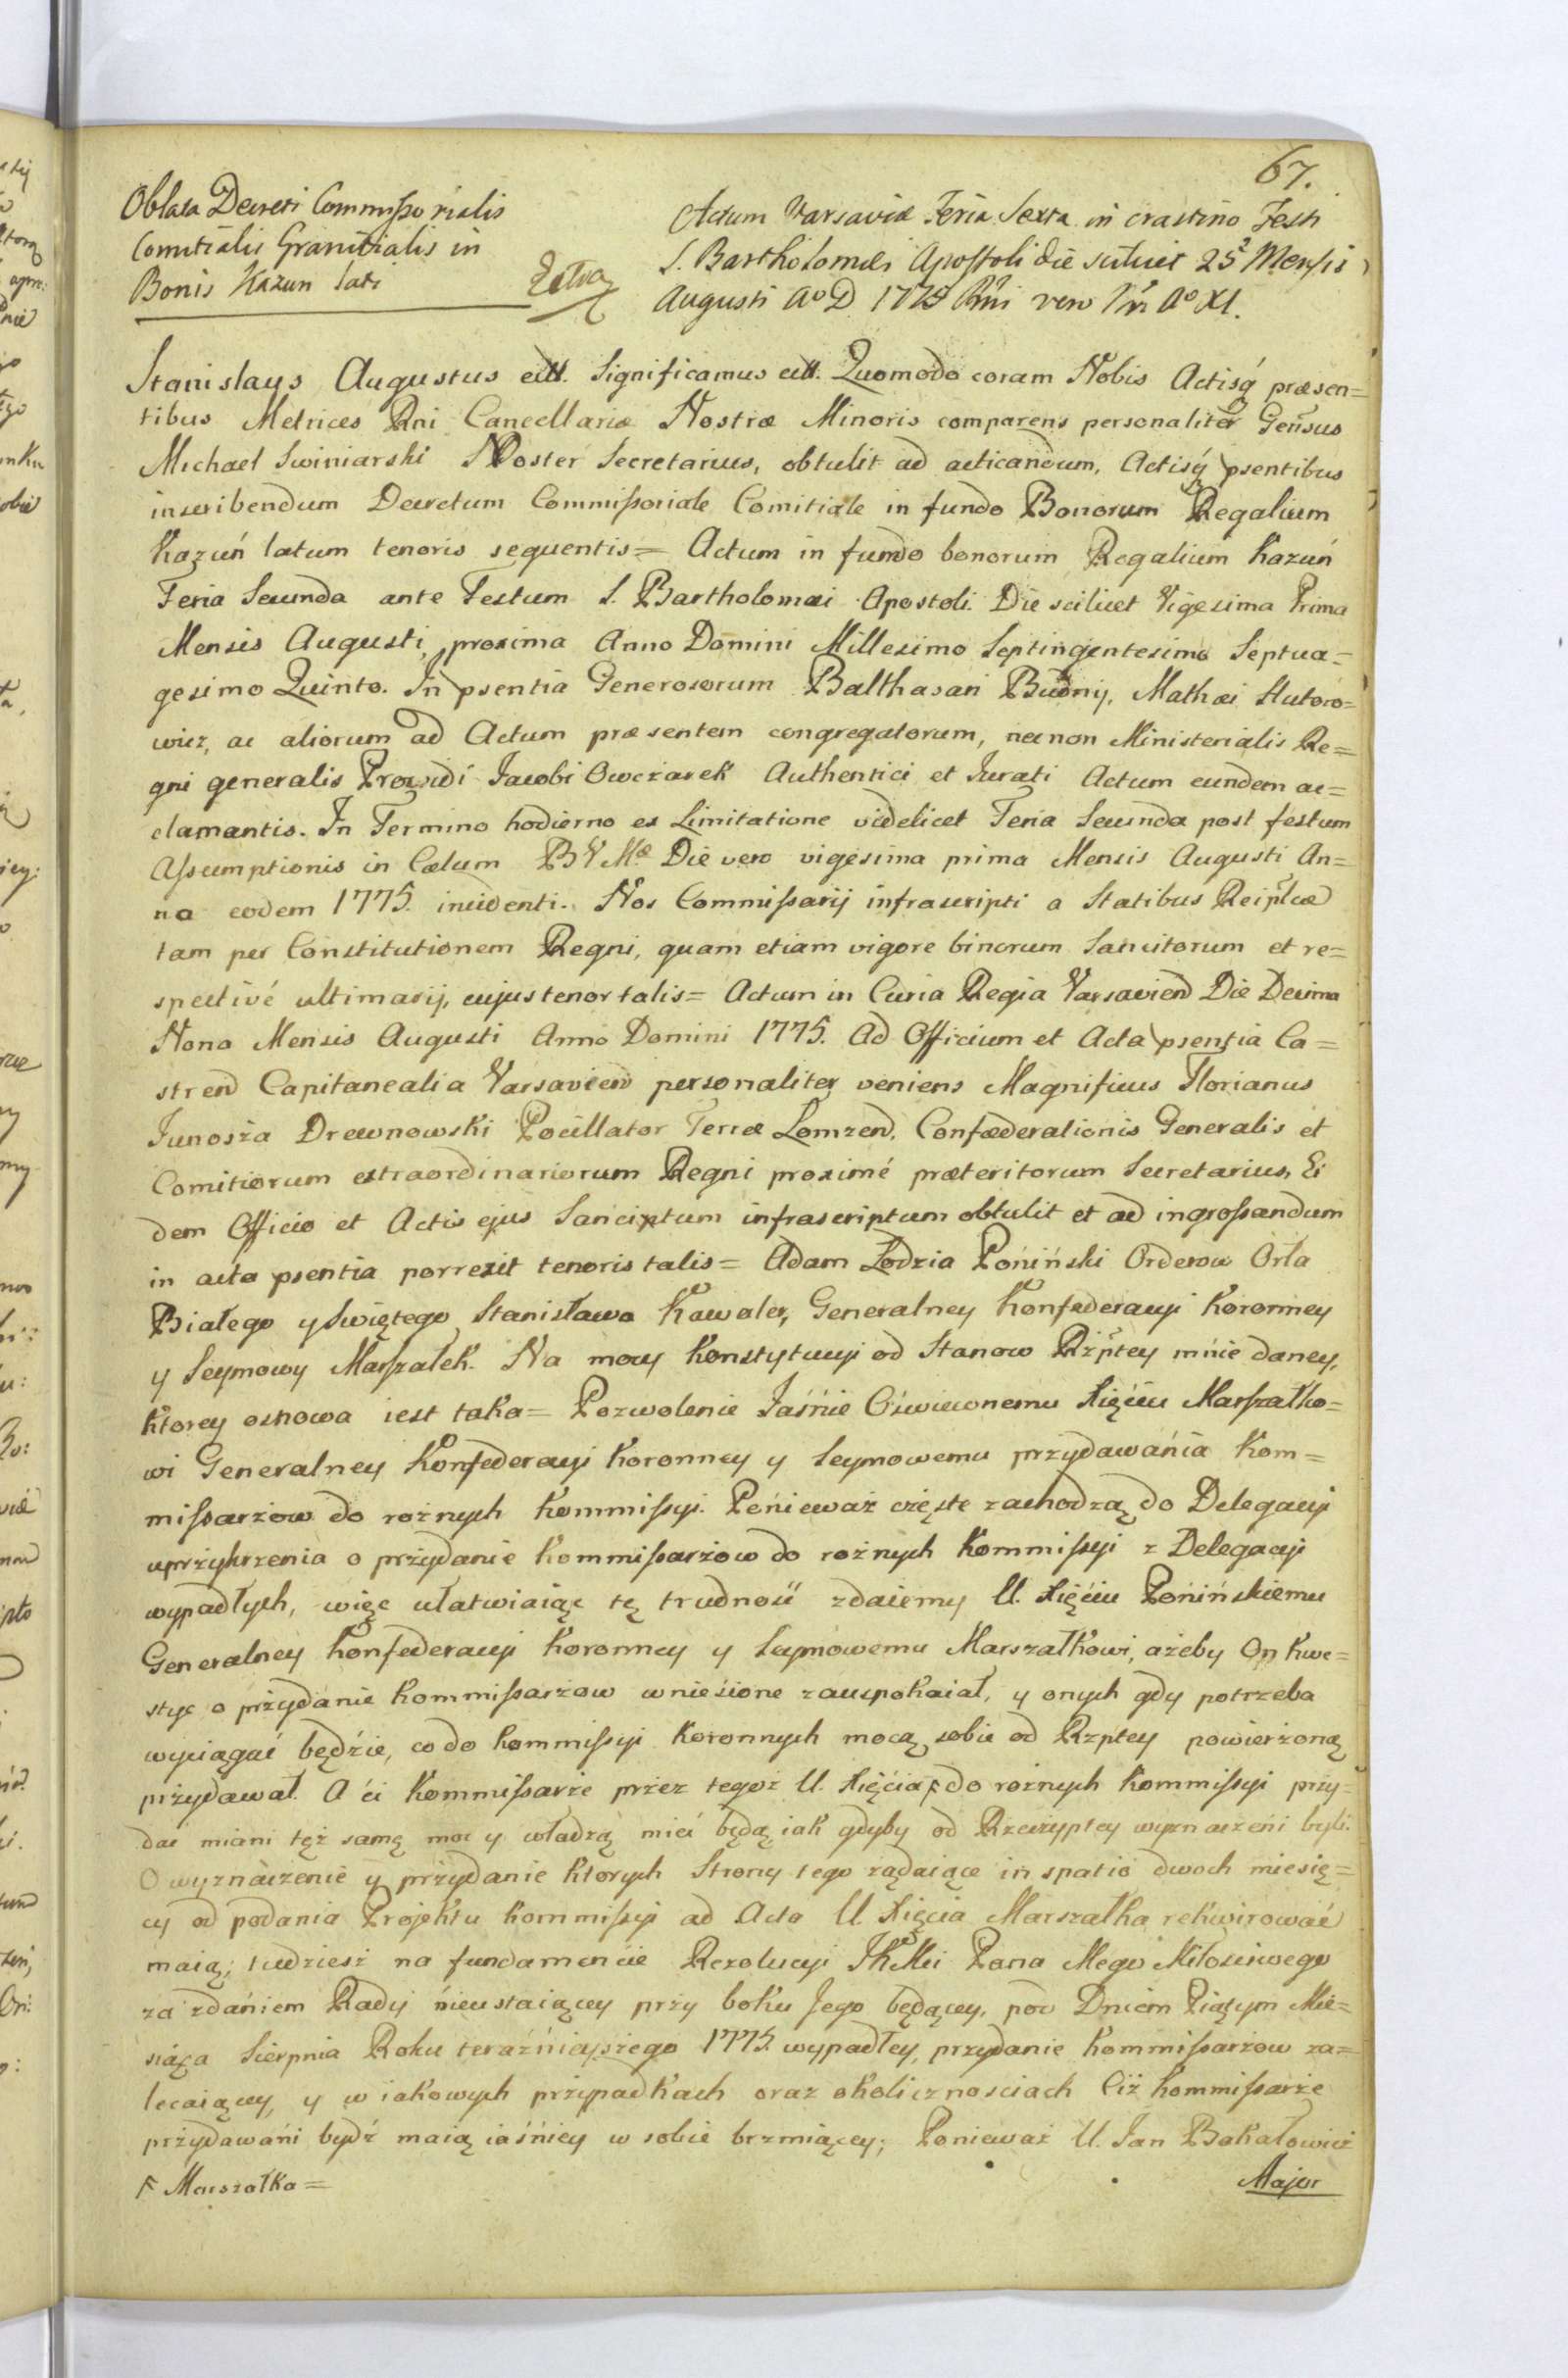 67.
Oblata Decreti Commissorialis
Comitialis Granitialis in
Bonis Kazun lati
Extra
Actum Varsaviæ Feria Sexta in crastino Festi
S. Bartholomæi Apostoli die scilicet 25ª Mensis
Augusti Aº D 1775 Rñi vero Nri Aº XI.
Stanislaus Augustus ettt. Significamus ettt. Quomodo coram Nobis Actisq́ præsen=
tibus Metrices Rni Cancellariæ Nostræ Minoris comparens personaliter Gen̄sus
Michael Swiniarski Noster Secretarius, obtulit ad acticandum, Actisq́ psentibus
inscribendum Decretum Commissoriale Comitiale in fundo Bonorum Regalium
Kazuń latum tenoris sequentis= Actum in fundo bonorum Regalium Kazuń
Feria Secunda ante Festum S. Bartholomæi Apostoli. Die scilicet Vigesima Prima
Mensis Augusti, proxima Anno Domini Millesimo Septingentesimo Septua=
gesimo Quinto. In psentia Generosorum Balthasari Budny, Mathæi Hutoro=
wicz, ac aliorum ad Actum præsentem congregatorum, necnon Ministerialis Re=
gni generalis Providi Jacobi Owczarek Authentici et Jurati Actum eundem ac=
clamantis. In Termino hodierno ex Limitatione videlicet Feria Secunda post festum
Assumptionis in Cælum B V Mæ Die vero vigesima prima Mensis Augusti An=
no eodem 1775. incidenti. Nos Commissarij infrascripti a Statibus Reip̃lcæ
tam per Constitutionem Regni, quam etiam vigore binorum Sancitorum et re=
spectivé ultimarij, cujus tenor talis= Actum in Curia Regia Varsavien̄ Die Decima
Nona Mensis Augusti Anno Domini 1775. Ad Officium et Acta psentia Ca=
stren̄ Capitanealia Varsavien̄ personaliter veniens Magnificus Florianus
Junosza Drewnowski Pocillator Terræ Lomzen̄, Confæderationis Generalis et
Comitiorum extraordinariorum Regni proximé præteritorum Secretarius, Ei
dem Officio et Actis ejus Sancitum infrascriptum obtulit et ad ingrossandum
in acta psentia porrexit tenoris talis= Adam Łodzia Poniński Orderow Orła
Białego y Swiętego Stanisława Kawaler, Generalney Konfederacyi Koronney
y Seymowy Marszałek. Na mocy Konstytucyi od Stanow Rzp̃tey mnie daney,
Ktorey osnowa iest taka= Pozwolenie Jaśnie Oświeconemu Xięćiu Marszałko=
wi Generalney Konfederacyi Koronney y Seymowemu przydawánia Kom=
missarzow do rożnych Kommissyi. Pońieważ częste zachodzą do Delegacyi
uprzykrzenia o przydanie Kommissarzow do rożnych Kommissyi z Delegacyi
wypadłych, więc ułatwiaiąc tę trudność zdaiemy U. Xięćiu Ponińskiemu
Generalney Konfederacyi Koronney y Seymowemu Marszałkowi, ażeby On Kwe=
stye o przydanie Kommissarzow wnieśione zauspokaiał, y onych gdy potrzeba
wyciągać będzie, co do Kommissyi Koronnych mocą sobie od Rzptey powierzoną
przydawał. A ći Kommissarze przez tegoż U. Xięćia F do rożnych Kommissyi przy=
dac miani tęż samę moc y władzą mieć będą iak gdyby od Rzeczyptey wyznaczeńi byli.
O wyznaczenie y przydanie ktorych Strony tego żądaiące in spatio dwoch mieśię=
cy od podania Projektu Kommissyi ad Acta U. Xięcia Marszałka rekwirować
maią; tudziesz na fundamencie Rezolucyi JKMci Pana Mego Miłościwego
za zdańiem Rady ńieustaiącey przy boku Jego będącey, pod Dniem Piątym Mie=
siąca Sierpnia Roku teraźńieyszego 1775. wypadłey, przydanie Kommissarzow za=
lecaiącey, y w iakowych przypadkach oraz okolicznosciach Ciż Kommissarze
przydawáni bydź maią iaśńiey w sobie brzmiącey; Ponieważ U. Jan Bakałowicz
F Marszałka=
Major